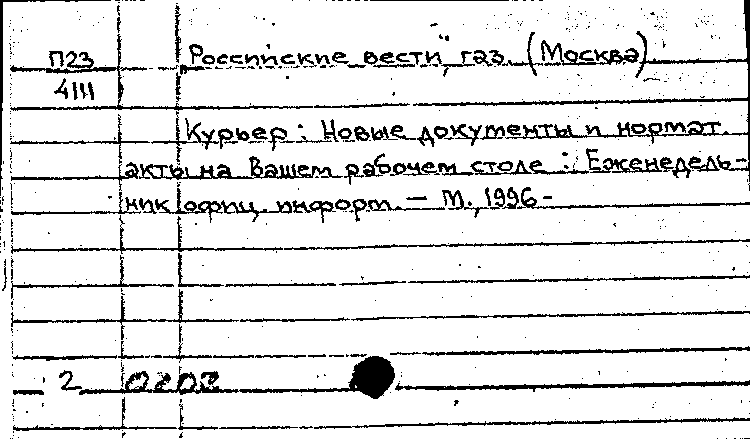 П23 „Российские вести", газ. (Москва)
4111
Курьер : Новые документы и нормат.
акты на Вашем рабочем столе : Еженедель-
ник офиц. информ. — М., 1996 -
2 0202